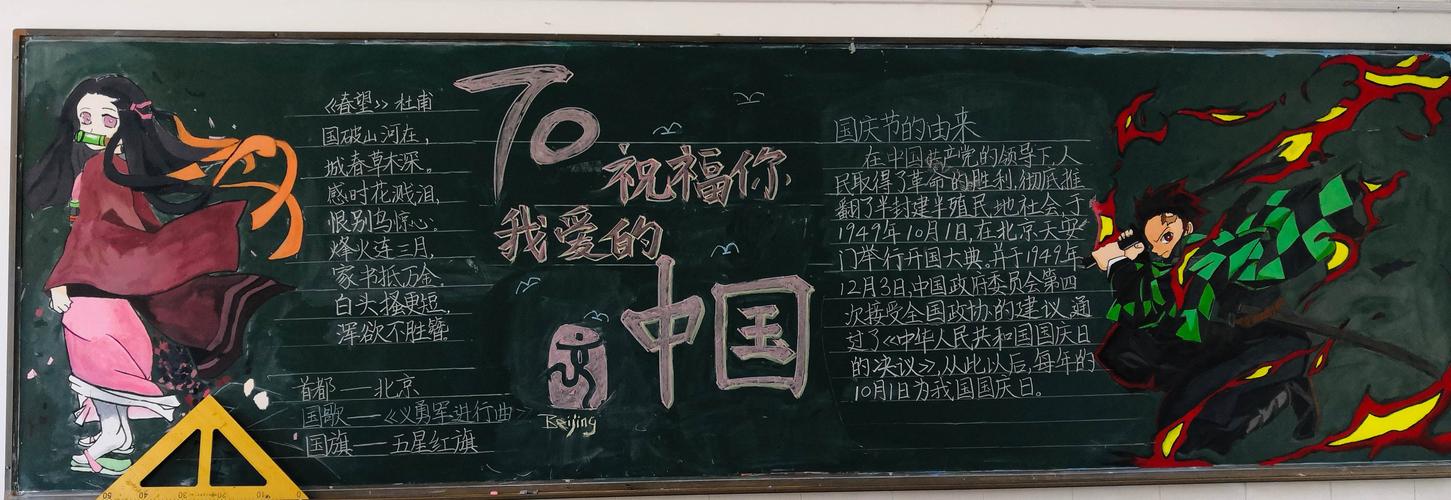 《春望》杜甫
国破山河在，
城春草木深。
感时花溅泪，
恨别鸟惊心。
烽火连三月，
家书抵万金。
白头搔更短，
浑欲不胜簪。
首都——北京
国歌——《义勇军进行曲》
国旗——五星红旗
70
祝福你
我爱的
中国
Beijing
国庆节的由来
在中国共产党的领导下,人
民取得了革命的胜利,彻底推
翻了半封建半殖民地社会,于
1949年10月1日,在北京天安
门举行开国大典。并于1949年
12月3日,中国政府委员会第四
次接受全国政协的建议,通
过了《中华人民共和国国庆日
的决议》,从此以后,每年的
10月1日为我国国庆日。
50 40 30 20 10 0